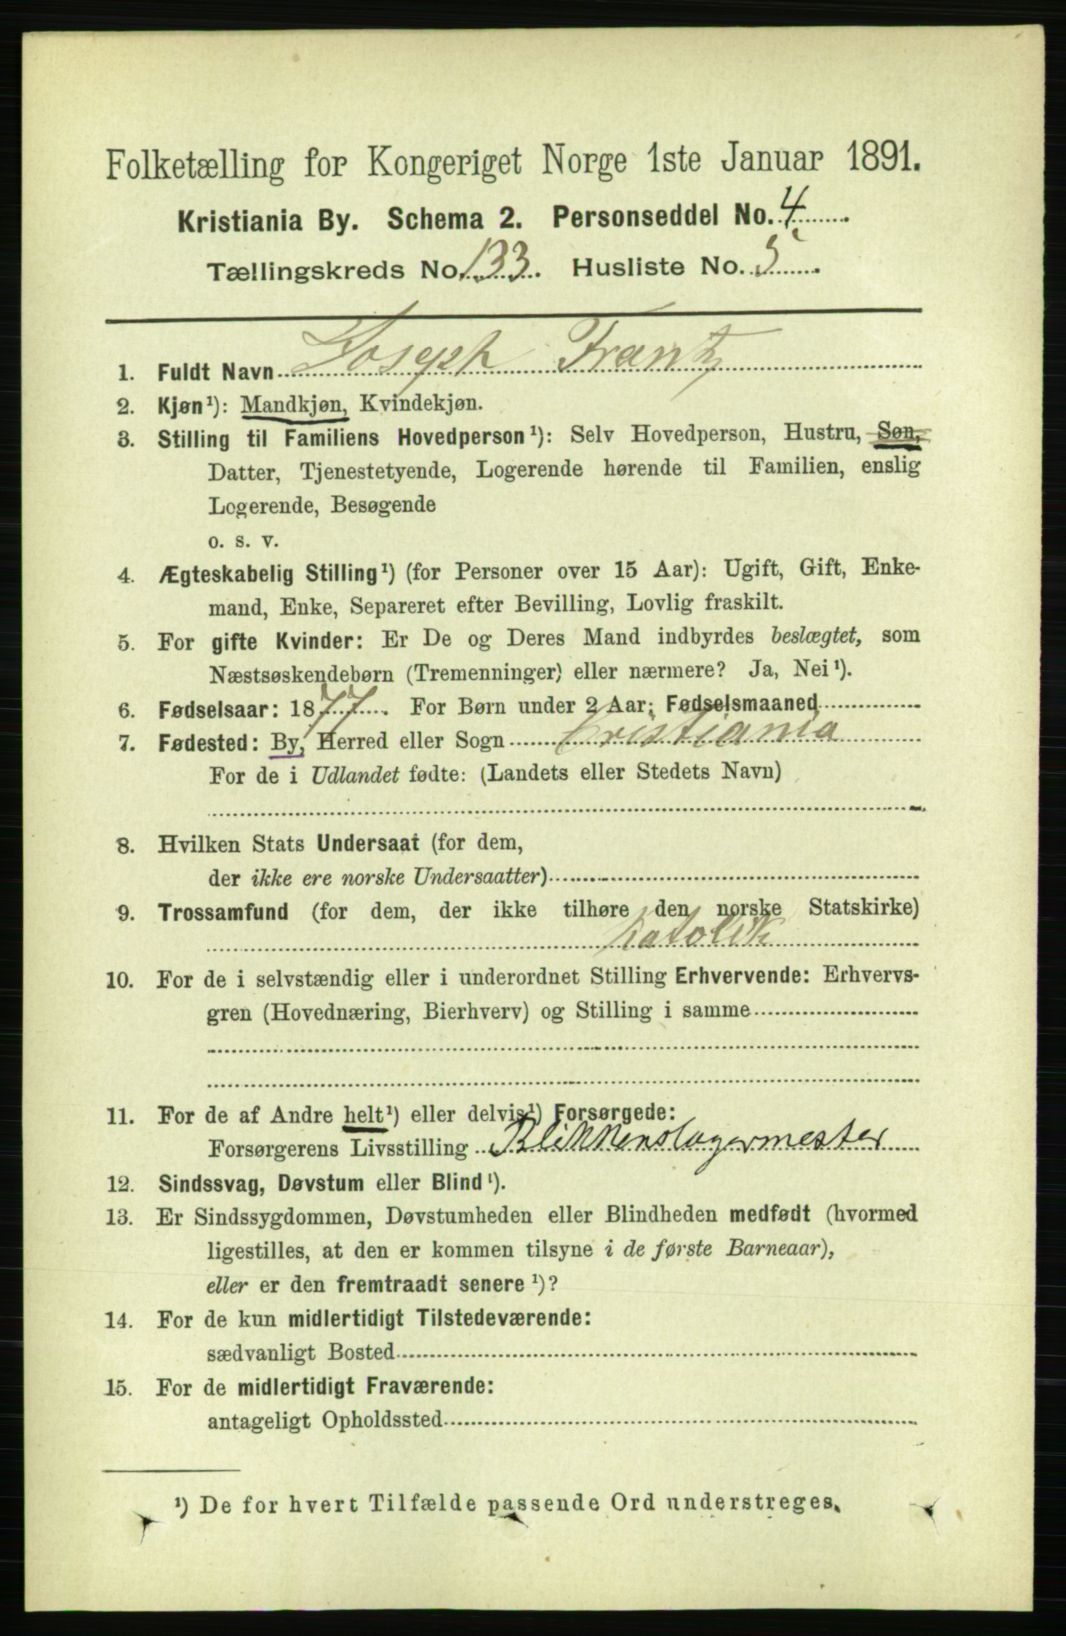 Folketælling for Kongeriget Norge 1ste Januar 1891.
Kristiania By. Schema 2. Personseddel No. 4.
Tællingskreds No. 133. Husliste No. 5
1. Fuldt Navn Joseph Frantz
2. Kjøn¹): Mandkjøn, Kvindekjøn.
3. Stilling til Familiens Hovedperson¹): Selv Hovedperson, Hustru, Søn,
Datter, Tjenestetyende, Logerende hørende til Familien, enslig
Logerende, Besøgende
o. s. v.
4. Ægteskabelig Stilling¹) (for Personer over 15 Aar): Ugift, Gift, Enke-
mand, Enke, Separeret efter Bevilling, Lovlig fraskilt.
5. For gifte Kvinder: Er De og Deres Mand indbyrdes beslægtet, som
Næstsøskendebørn (Tremenninger) eller nærmere? Ja, Nei¹).
6. Fødselsaar: 1877. For Børn under 2 Aar: Fødselsmaaned
7. Fødested: By, Herred eller Sogn Cristiania
For de i Udlandet fødte: (Landets eller Stedets Navn)
8. Hvilken Stats Undersaat (for dem,
der ikke ere norske Undersaatter)
9. Trossamfund (for dem, der ikke tilhøre den norske Statskirke)
katolik
10. For de i selvstændig eller i underordnet Stilling Erhvervende: Erhvervs-
gren (Hovednæring, Bierhverv) og Stilling i samme
11. For de af Andre helt¹) eller delvis¹) Forsørgede:
Forsørgerens Livsstilling Blikkenslagermester
12. Sindssvag, Døvstum eller Blind¹).
13. Er Sindssygdommen, Døvstumheden eller Blindheden medfødt (hvormed
ligestilles, at den er kommen tilsyne i de første Barneaar),
eller er den fremtraadt senere¹)?
14. For de kun midlertidigt Tilstedeværende:
sædvanligt Bosted
15. For de midlertidigt Fraværende:
antageligt Opholdssted
¹) De for hvert Tilfælde passende Ord understreges.